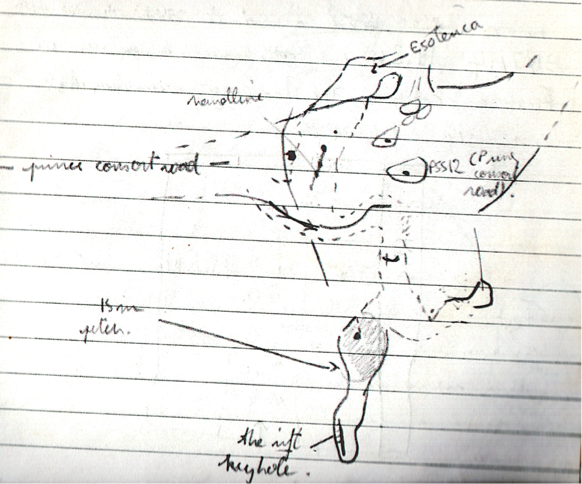 Esoterica
handline
prince consort road
PSS12
consort
road).
15m
pitch.
the rift
keyhole.